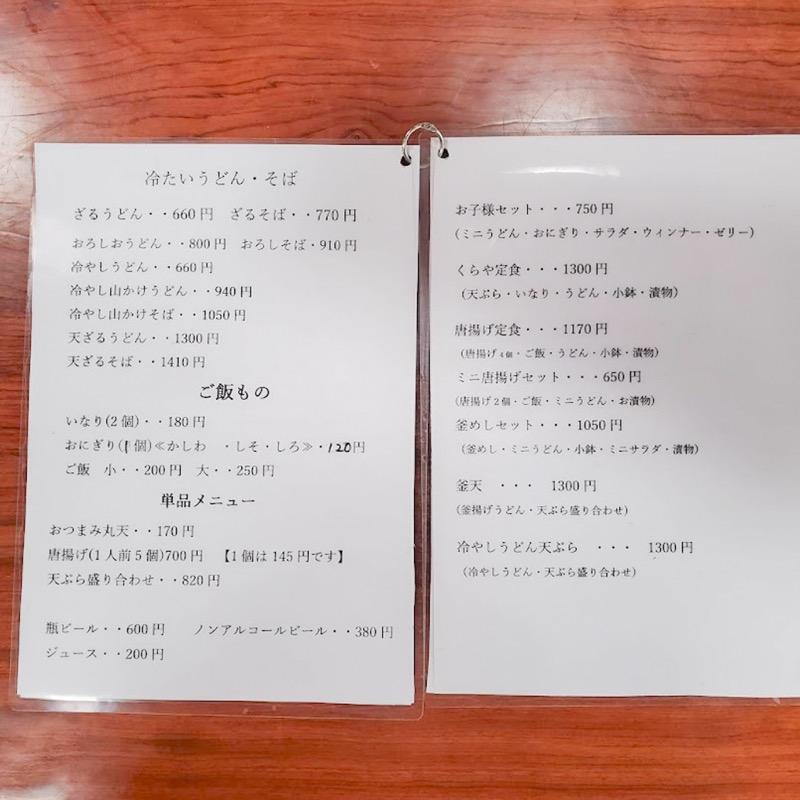 冷たいうどん・そば
ざるうどん・・660円　ざるそば・・770円
おろしおうどん・・800円　おろしそば・910円
冷やしうどん・・660円
冷やし山かけうどん・・940円
冷やし山かけそば・・1050円
天ざるうどん・・1300円
天ざるそば・・1410円
ご飯もの
いなり(2個)・・180円
おにぎり(1個)≪かしわ　・しそ・しろ≫・120円
ご飯　小・・200円　大・・250円
単品メニュー
おつまみ丸天・・170円
唐揚げ(1人前5個)700円　【1個は145円です】
天ぷら盛り合わせ・・820円
瓶ビール・・600円　　ノンアルコールビール・・380円
ジュース・・200円
お子様セット・・・750円
(ミニうどん・おにぎり・サラダ・ウィンナー・ゼリー)
くらや定食・・・1300円
(天ぷら・いなり・うどん・小鉢・漬物)
唐揚げ定食・・・1170円
(唐揚げ4個・ご飯・うどん・小鉢・漬物)
ミニ唐揚げセット・・・650円
(唐揚げ2個・ご飯・ミニうどん・お漬物)
釜めしセット・・・1050円
(釜めし・ミニうどん・小鉢・ミニサラダ・漬物)
釜天　・・・　1300円
(釜揚げうどん・天ぷら盛り合わせ)
冷やしうどん天ぷら　・・・　1300円
(冷やしうどん・天ぷら盛り合わせ)